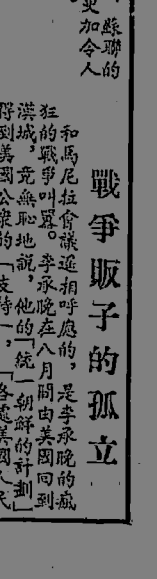 戰爭販子的孤立
蘇聯的
更加令人
和馬尼拉會議遥相呼應的，是李承晚的瘋
狂的戰爭叫囂。李承晚在八月間由美國回到
漢城，竟無恥地説，他的「統一朝鮮的計劃」
得到美國公衆的「支持」，「各處美國人民